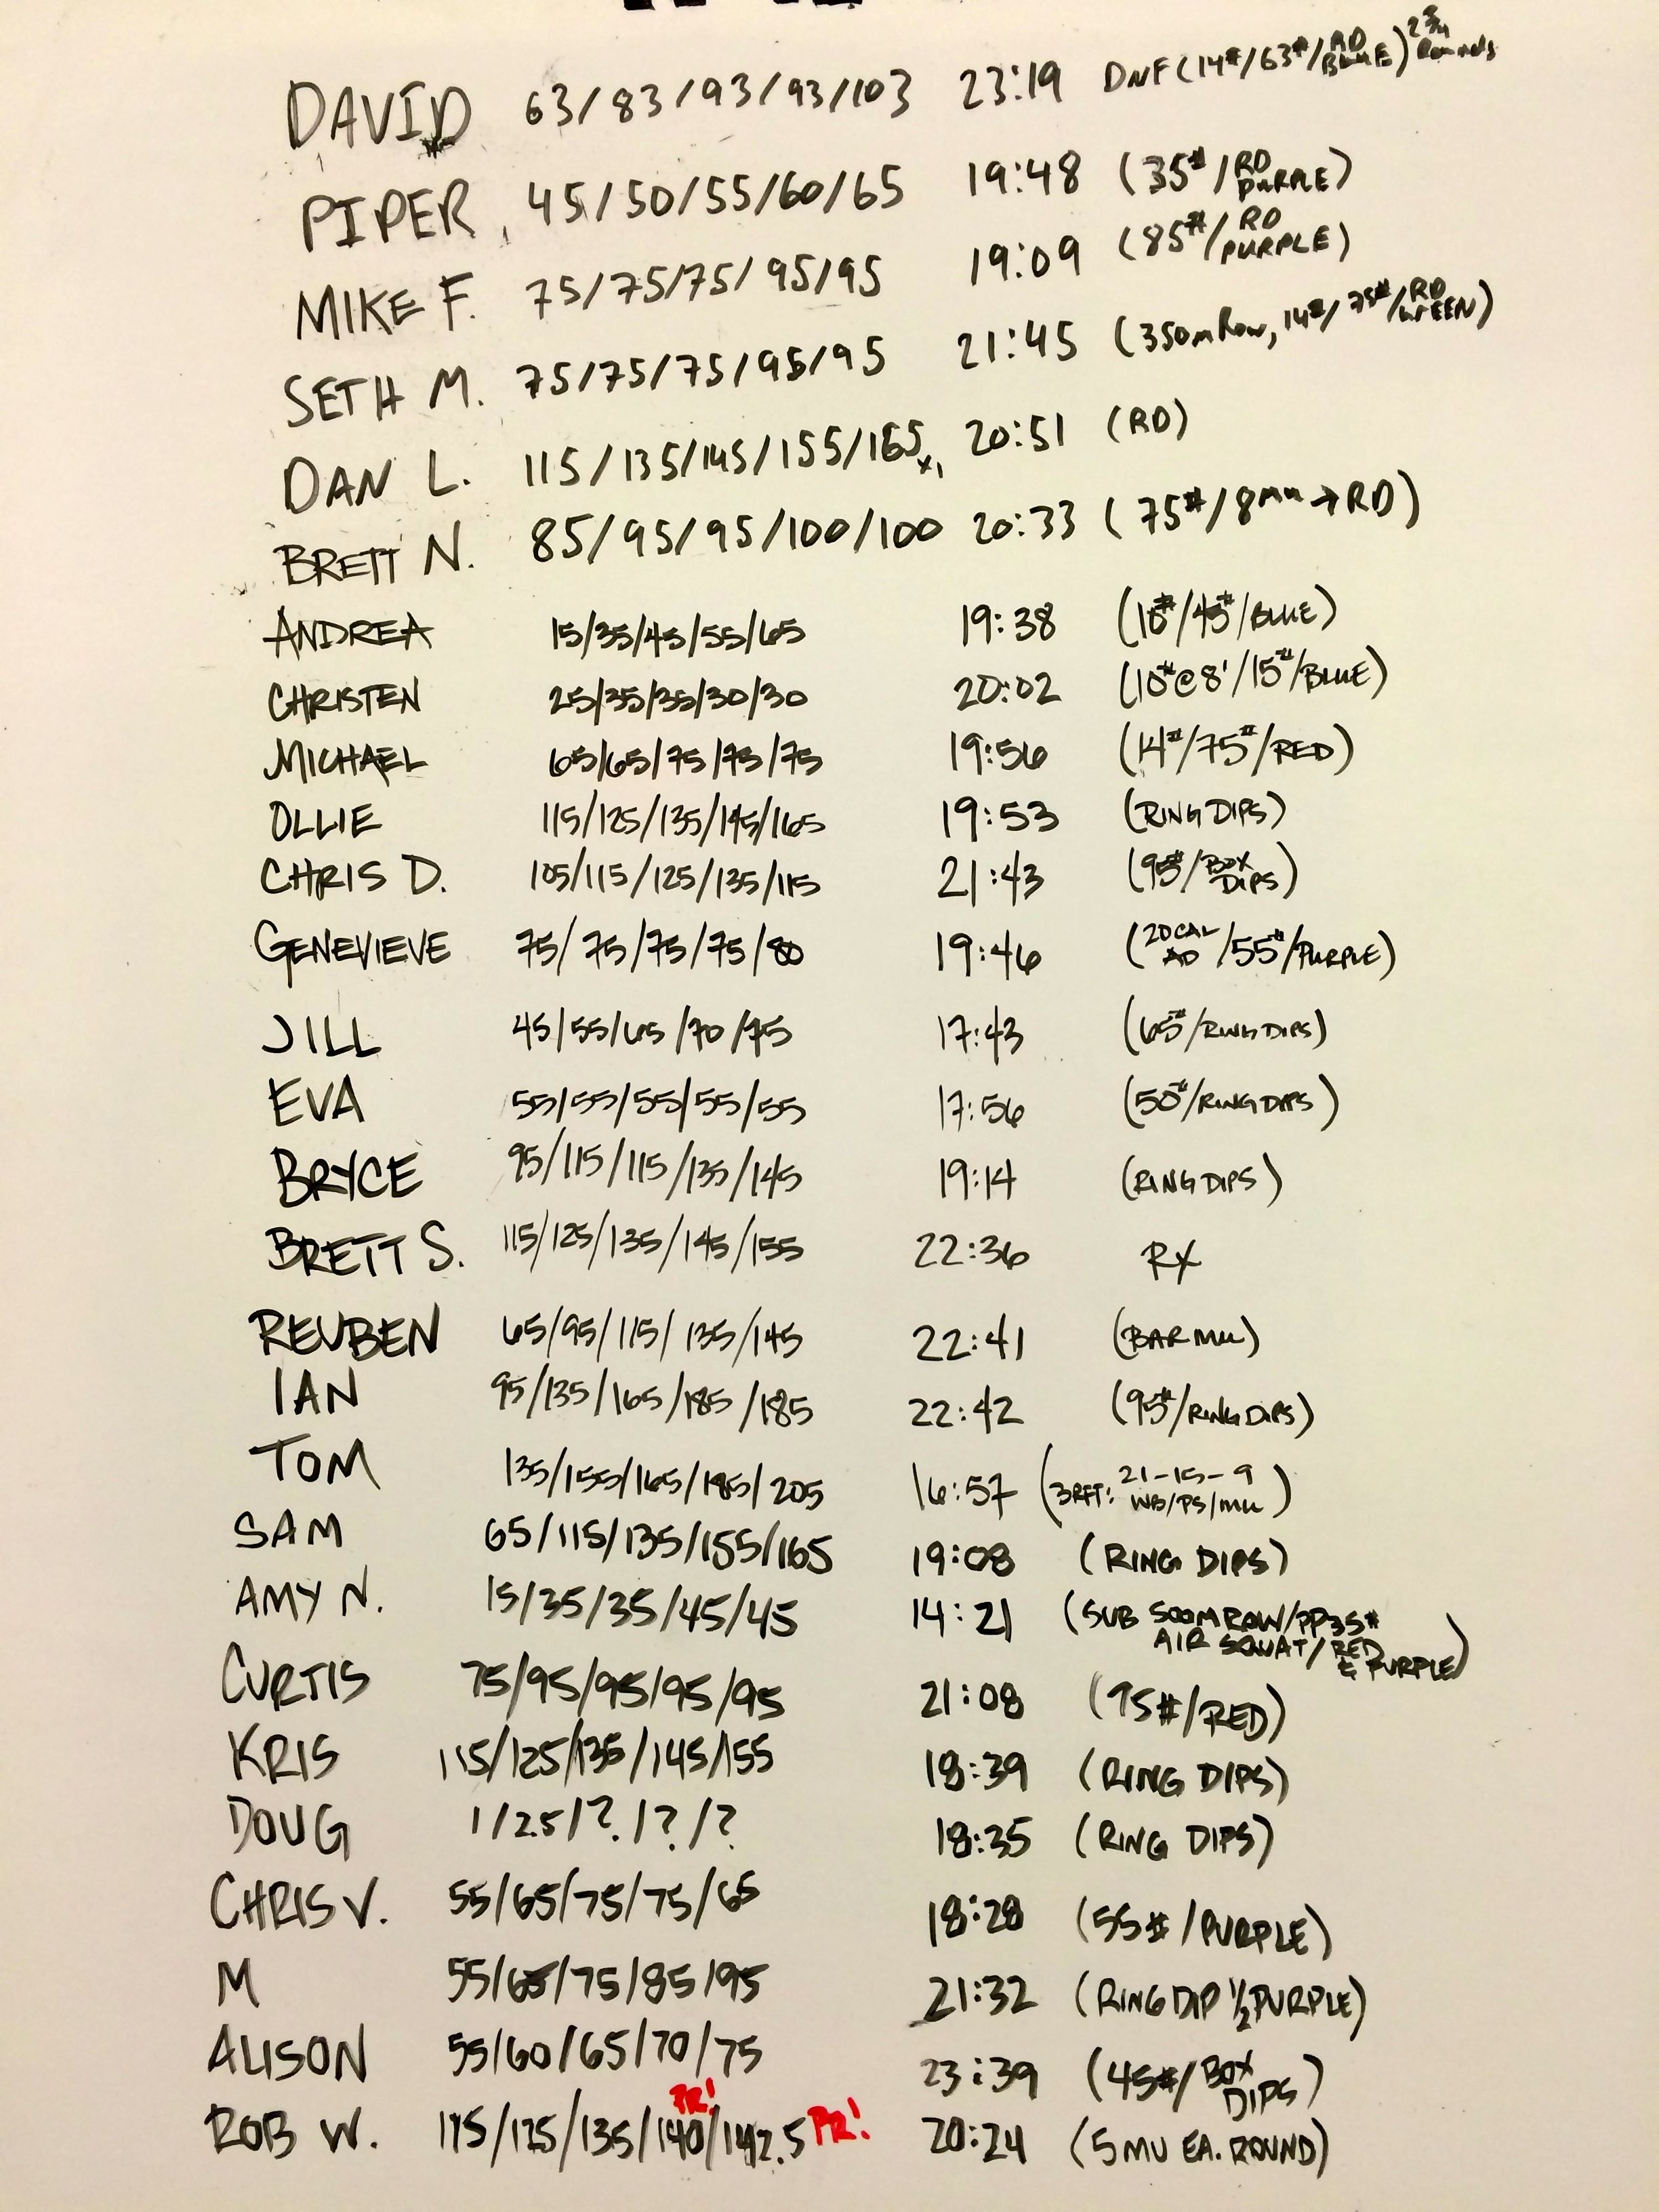 DAVID 63/83/93/93/103 23:19 DNF (14#/63#/RD BLUE) 2 3/4 Rounds
PIPER 45/50/55/60/65 19:48 (35#/RD PURPLE)
MIKE F. 75/75/75/95/95 19:09 (85#/RD PURPLE)
SETH M. 75/75/75/95/95 21:45 (350m Row, 14#/75#/RD GREEN)
DAN L. 115/135/145/155/165 x1 20:51 (RD)
BRETT N. 85/95/95/100/100 20:33 (75#/8mu → RD)
ANDREA 15/35/45/55/65 19:38 (10#/45#/BLUE)
CHRISTEN 25/35/35/30/30 20:02 (10#@8'/15#/BLUE)
MICHAEL 65/65/75/75/75 19:56 (14#/75#/RED)
OLLIE 115/125/135/145/165 19:53 (RING DIPS)
CHRIS D. 105/115/125/135/115 21:43 (95#/BOX DIPS)
GENEVIEVE 75/75/75/75/80 19:46 (20CAL AD/55#/PURPLE)
JILL 45/55/65/70/75 17:43 (65#/RING DIPS)
EVA 55/55/55/55/55 17:56 (50#/RING DIPS)
BRYCE 95/115/115/135/145 19:14 (RING DIPS)
BRETT S. 115/125/135/145/155 22:36 RX
REUBEN 65/95/115/135/145 22:41 (BAR MU)
IAN 95/135/165/185/185 22:42 (95#/RING DIPS)
TOM 135/155/165/185/205 16:57 (3RFT: 21-15-9 WB/PS/MU)
SAM 65/115/135/155/165 19:08 (RING DIPS)
AMY N. 15/35/35/45/45 14:21 (SUB 500M ROW/PP35# AIR SQUAT/RED & PURPLE)
CURTIS 75/95/95/95/95 21:08 (95#/RED)
KRIS 115/125/135/145/155 18:39 (RING DIPS)
DOUG 1/25/?/?/? 18:35 (RING DIPS)
CHRIS V. 55/65/75/75/65 18:28 (55#/PURPLE)
M 55/65/75/85/95 21:32 (RING DIP 1/2 PURPLE)
ALISON 55/60/65/70/75 23:39 (45#/BOX DIPS)
ROB W. 115/125/135/140 PR!/142.5 PR! 20:24 (5 MU EA. ROUND)